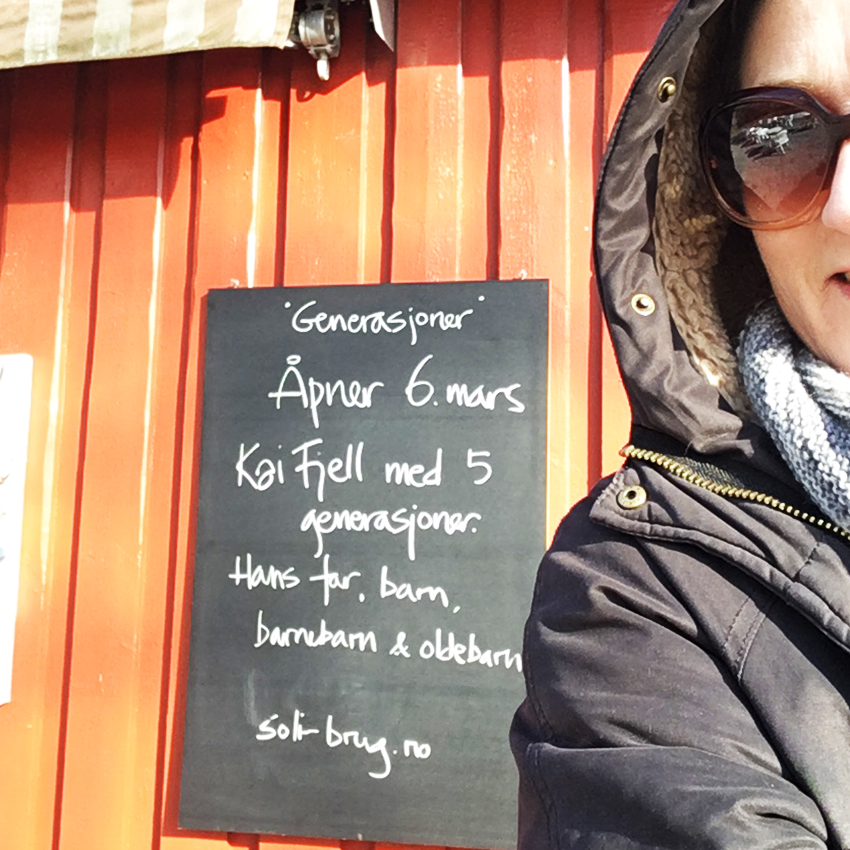 "Generasjoner"
Åpner 6. mars
Kai Fjell med 5
generasjoner.
Hans far, barn,
barnebarn & oldebarn
soli-brug.no